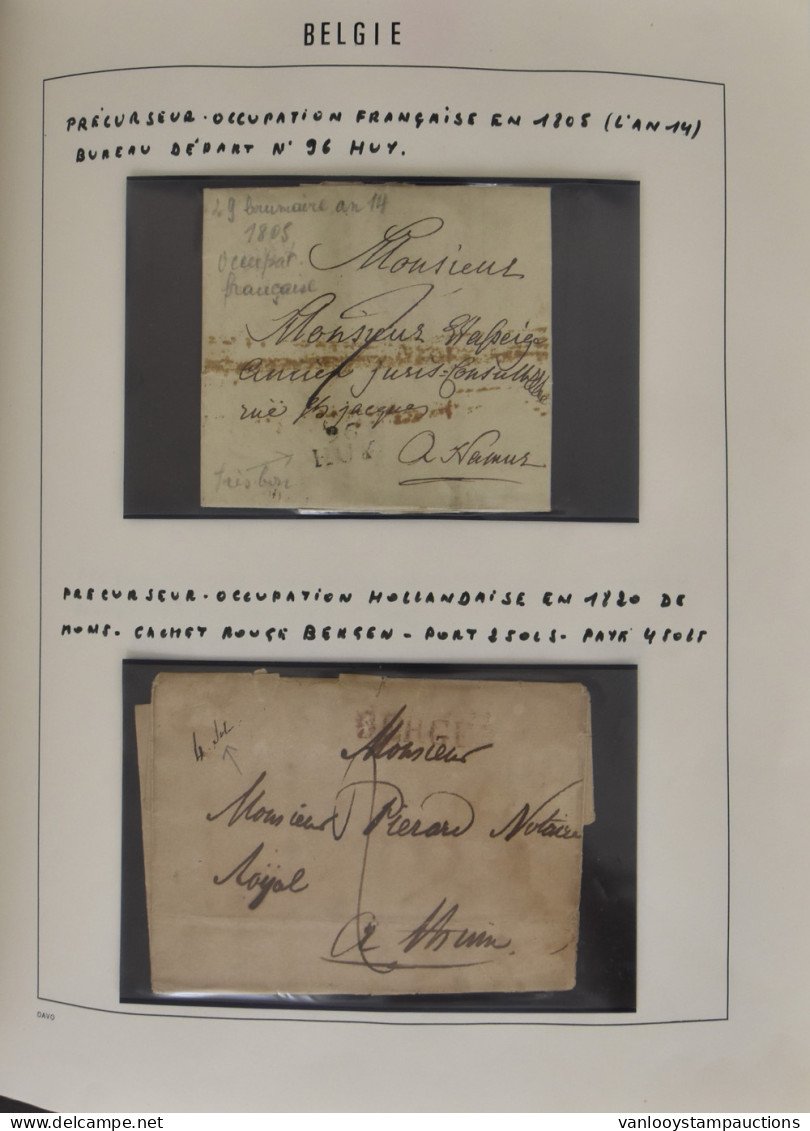 BELGIE
PRÉCURSEUR - OCCUPATION FRANÇAISE EN 1805 (L'AN 14)
BUREAU DÉPART N° 96 HUY.
29 brumaire an 14
1805
Occupat.
française
Monsieur
Monsieur
ancien juris-Consulte
rue St jacques
96
HUY
a Namur
très bon
PRECURSEUR - OCCUPATION HOLLANDAISE EN 1820 DE
MONS - CACHET ROUGE BERGEN - PORT 2 SOLS - PAYÉ 4 SOLS
BERGEN
Monsieur
Monsieur Pierard Notaire
Roÿal
a
DAVO
vanlooystampauctions